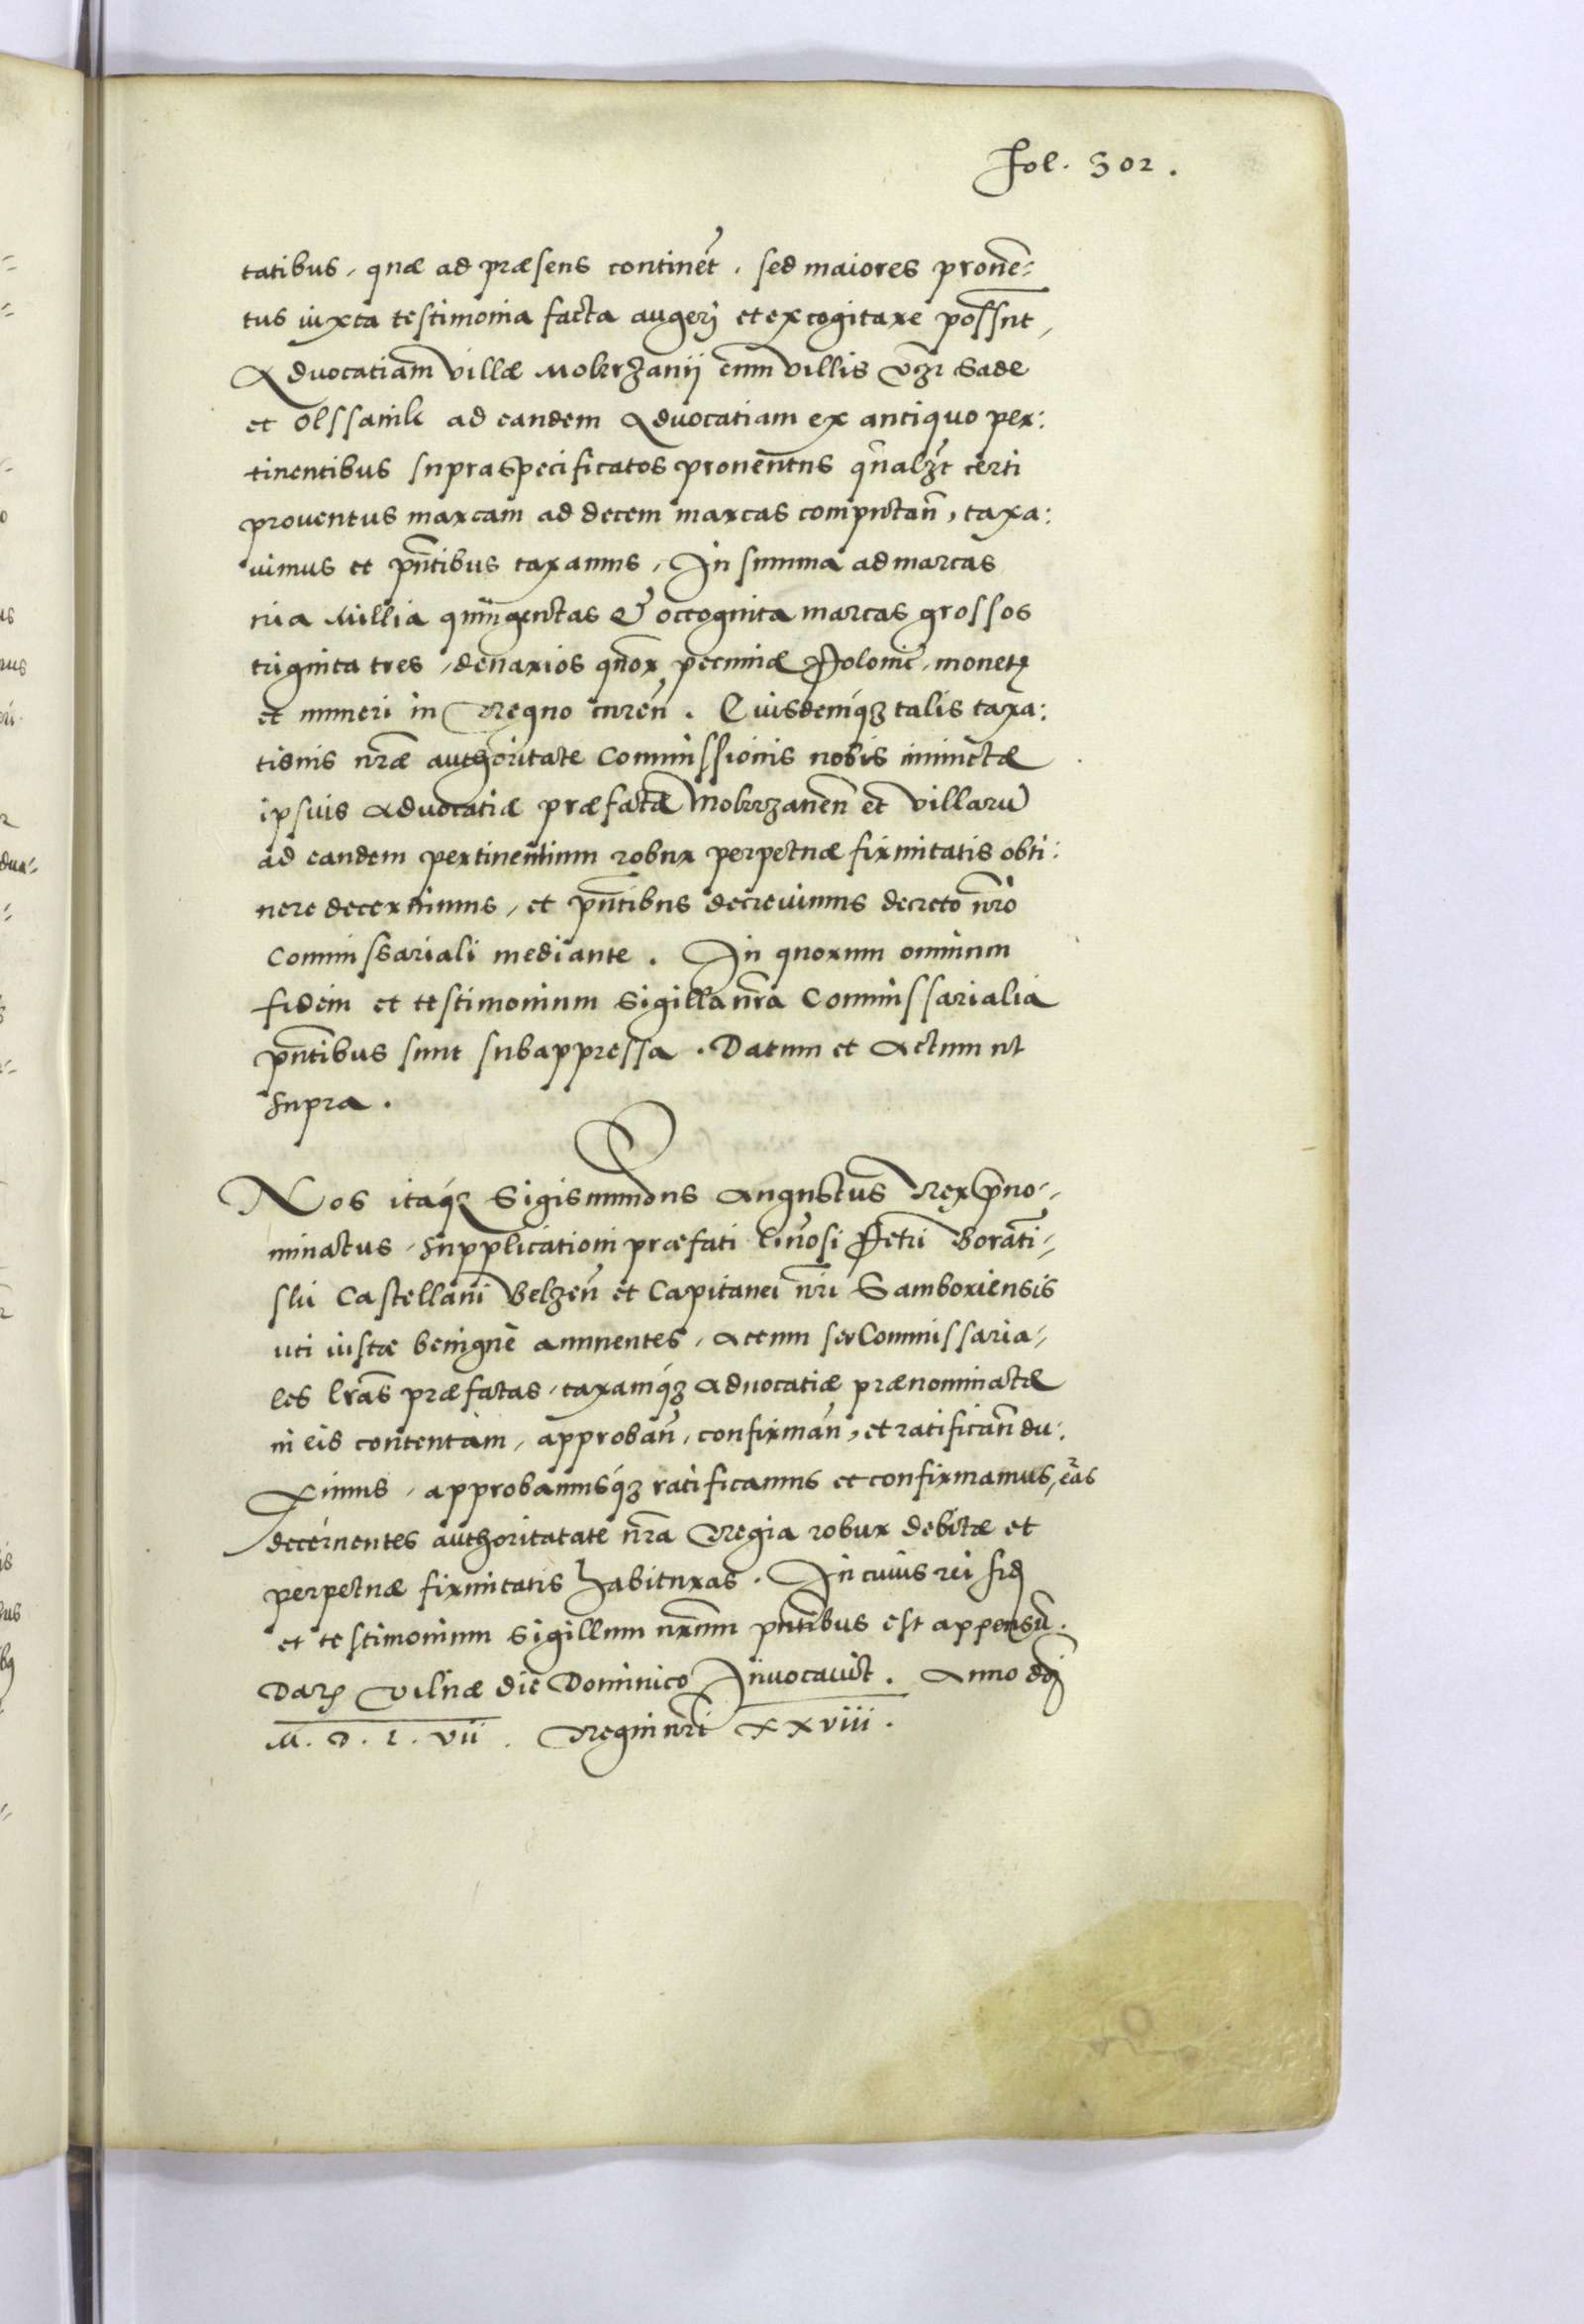 Fol. 302.
tatibus, quæ ad præsens continet̃. sed maiores prouen-
tus iuxta testimonia facta augeri et excogitare possunt,
Aduocatiam villæ Mokrzanij cum villis vz̃ Sade
et Olssanik ad eandem Aduocatiam ex antiquo per:
tinentibus supraspecificatos prouentus q̃ualz̃t certi
prouentus marcam ad decem marcas computan̄, taxa:
uimus et pñtibus taxamus, In summa ad marcas
tria Millia quingentas & octoginta marcas grossos
triginta tres, denarios quor̃ pecuniæ Polonic̃. monetę
et numeri in Regno curen̄. Eiusdemq́ȝ talis taxa:
tionis nr̃æ authoritate Commissionis nobis iniunctæ
ipsius aduocatiæ præfatæ Mokrzanen̄ et villarũ
ad eandem pertinentium robur perpetuæ firmitatis obti:
nere decernimus, et pñtibus decreuimus decreto nr̃o
Commissariali mediante. In quorum omnium
fidem et testimonium Sigilla nr̃a Commissarialia
pñtibus sunt subappressa. Datum et Actum ut
supra.
Nos itaq́ȝ Sigismundus Augustus Rex p̃no-
minatus, supplicationi præfati Gn̄osi Petri Borati-
slii Castellani Belzen̄ et Capitanei nr̃i Samboriensis
uti iustæ benigne annuentes, Actum seu Commissaria-
les lr̃as præfatas, taxamq́ȝ aduocatiæ prænominatæ
in eis contentam, approban̄, confirman̄, et ratifican̄ du:
ximus, approbamusq́ȝ ratificamus et confirmamus, eas
decernentes authoritatate nr̃a Regia robur debitæ et
perpetuæ firmitatis habituras. In cuius rei fid̃
et testimonium Sigillum nr̃um pñtibus est appensũ.
Dat̃ Vilnæ die Dominico Inuocauit. Anno dñj
M. D. L. vii. Regni nr̃i xxviii.